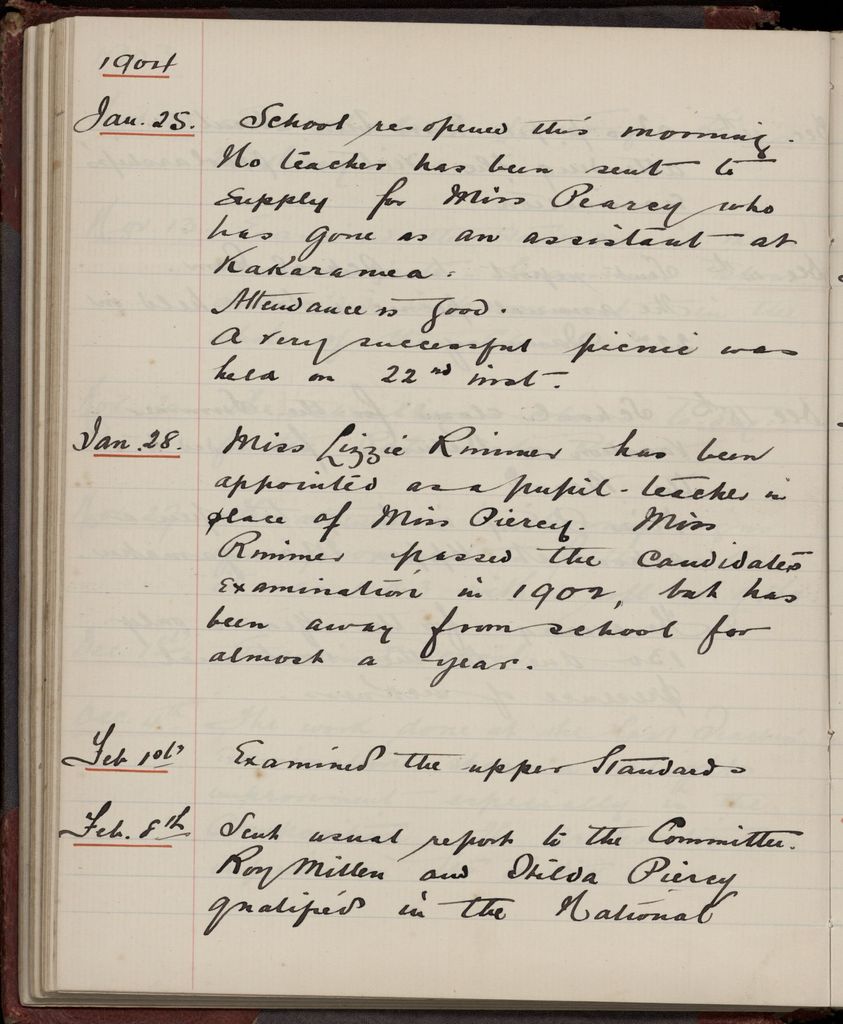 1904
Jan. 25. School re-opened this morning.
No teacher has been sent to
supply for Miss Pearcy who
has gone as an assistant at
Kakaramea.
Attendance is good.
A very successful picnic was
held on 22nd inst.
Jan. 28. Miss Lizzie Rimmer has been
appointed as a pupil-teacher in
place of Miss Piercy. Miss
Rimmer passed the Candidates
Examination in 1902, but has
been away from school for
almost a year.
Feb 1st Examined the upper Standards
Feb. 8th Sent usual report to the Committee.
Roy Millen and Hilda Piercy
qualified in the National